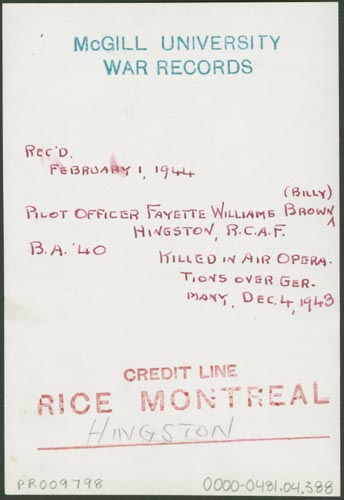 McGILL UNIVERSITY
WAR RECORDS
REC'D.
FEBRUARY 1, 1944
(BILLY)
PILOT OFFICER FAYETTE WILLIAMS BROWN ^
HINGSTON, R.C.A.F.
B.A. '40
KILLED IN AIR OPERA-
TIONS OVER GER-
MANY, DEC. 4, 1943
CREDIT LINE
RICE MONTREAL
HINGSTON
PR009798
0000-0481.04.388